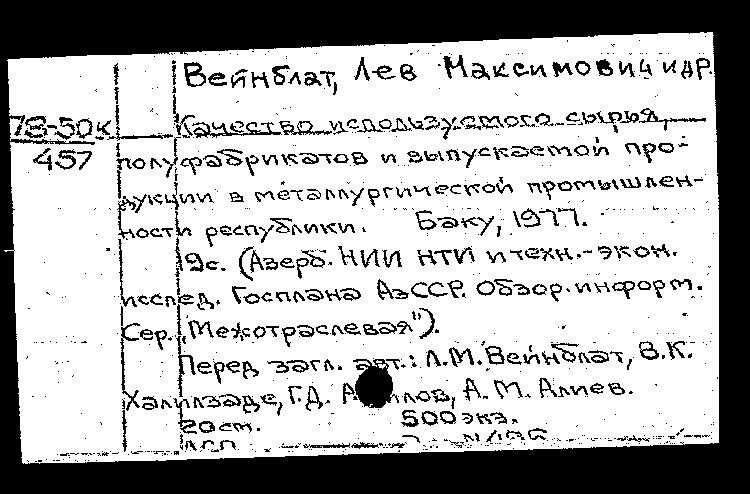 Вейнблат, Лев Максимович и др.
78-50к Качество используемого сырья,
457 полуфабрикатов и выпускаемой про-
дукции в металлургической промышлен-
ности республики. Баку, 1977.
19с. (Азерб. НИИ НТИ и техн.-экон.
исслед. Госплана АзССР. Обзор. информ.
Сер. „Межотраслевая").
Перед загл. авт.: Л.М. Вейнблат, В.К.
Халилзаде, Г.Д. А. М. Алиев.
20см. 500 экз.